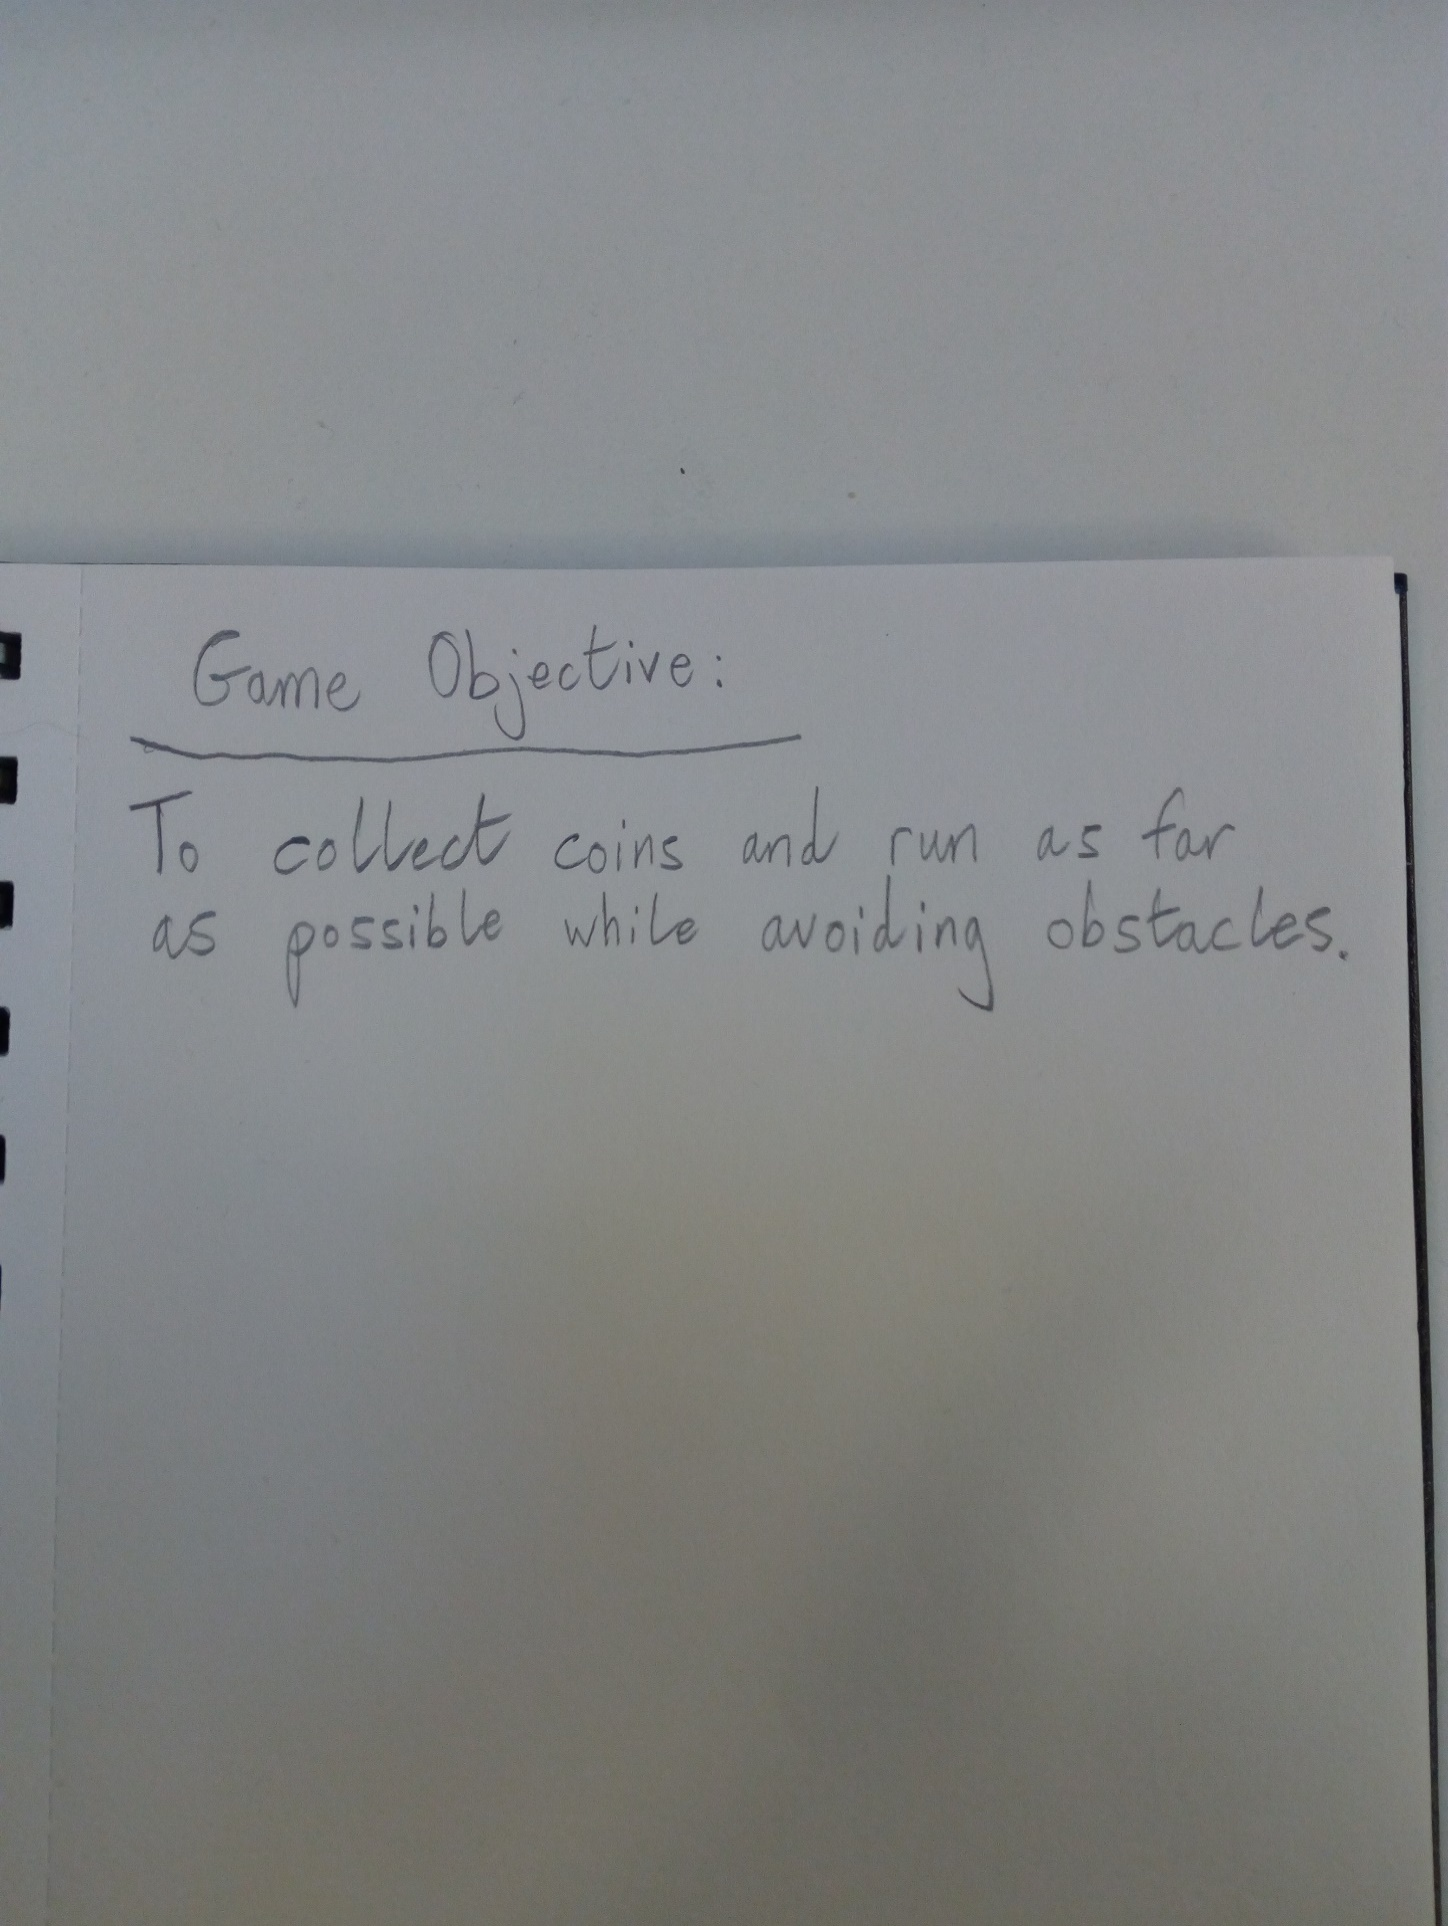 Game Objective:
To collect coins and run as far
as possible while avoiding obstacles.